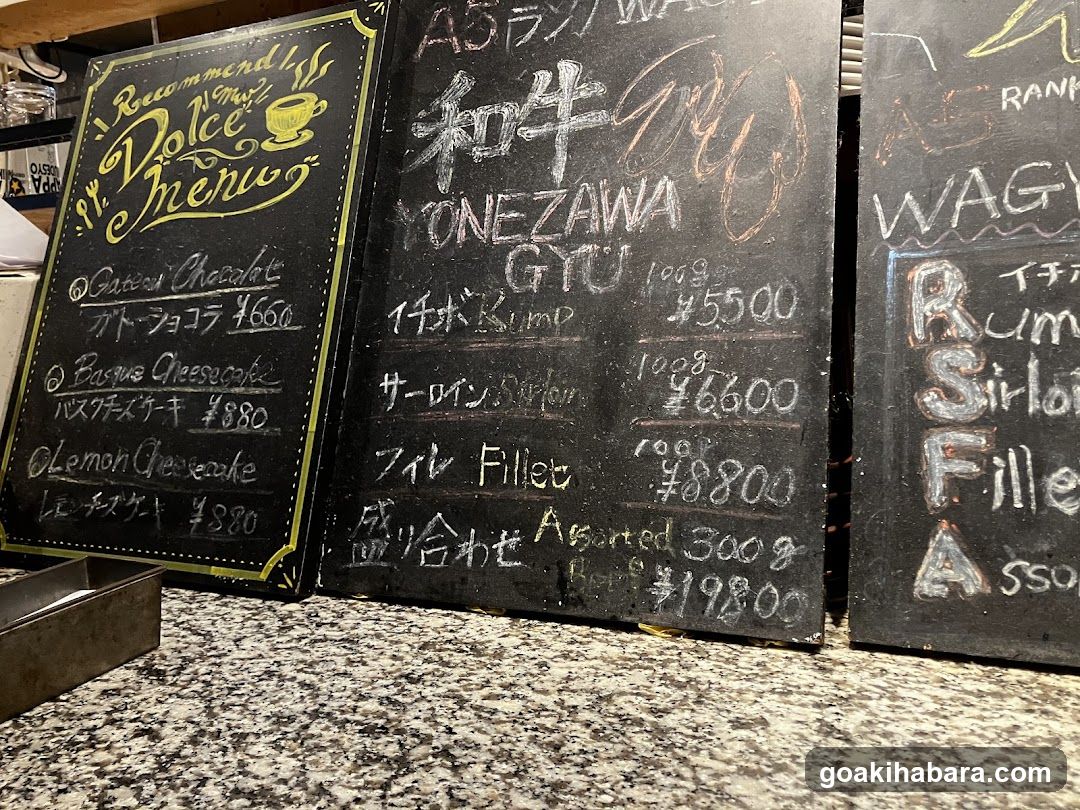 Recommend!
Dolce
menu
Gateau Chocolat
ガトーショコラ ¥660
Basque Cheesecake
バスクチーズケーキ ¥880
Lemon Cheesecake
レモンチーズケーキ ¥880
A5ランク WAG
和牛
YONEZAWA
GYU
イチボ Rump 100g ¥5500
サーロイン Sirloin 100g ¥6600
フィレ Fillet 100g ¥8800
盛り合わせ Assorted 300g
Beef ¥19800
RANK
A5
WAGY
イチ
Rum
Sirloi
Fille
Asso
goakihabara.com